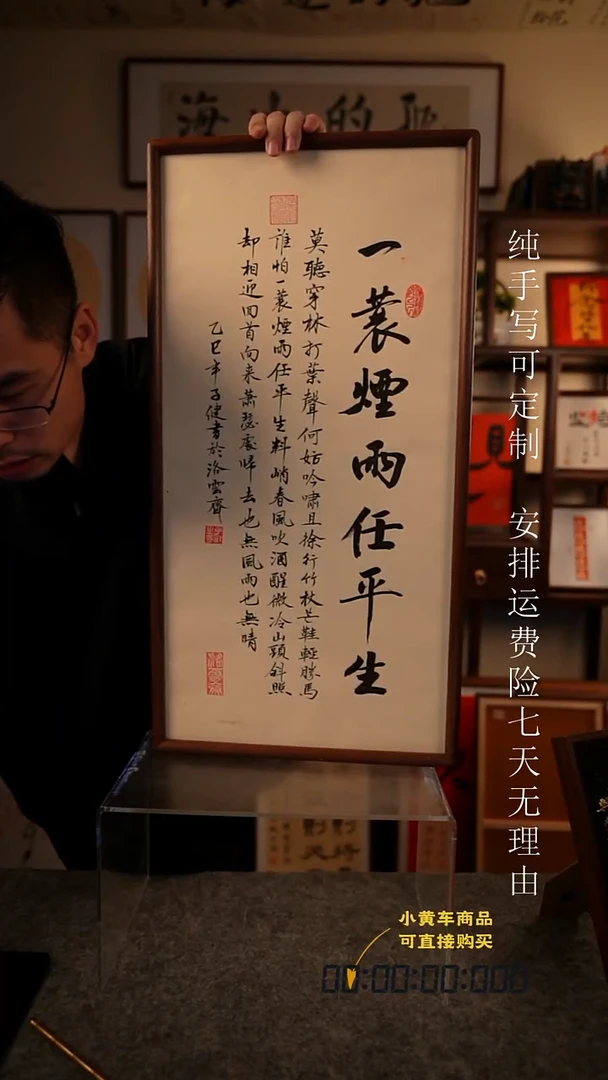 一蓑煙雨任平生
莫聽穿林打葉聲何妨吟嘯且徐行竹杖芒鞋輕勝馬
誰怕一蓑煙雨任平生料峭春風吹酒醒微冷山頭斜照
却相迎回首向来蕭瑟處歸去也無風雨也無晴
乙巳年子健書於洛雲齋
纯手写可定制 安排运费险七天无理由
小黄车商品
可直接购买
00:00:00:000